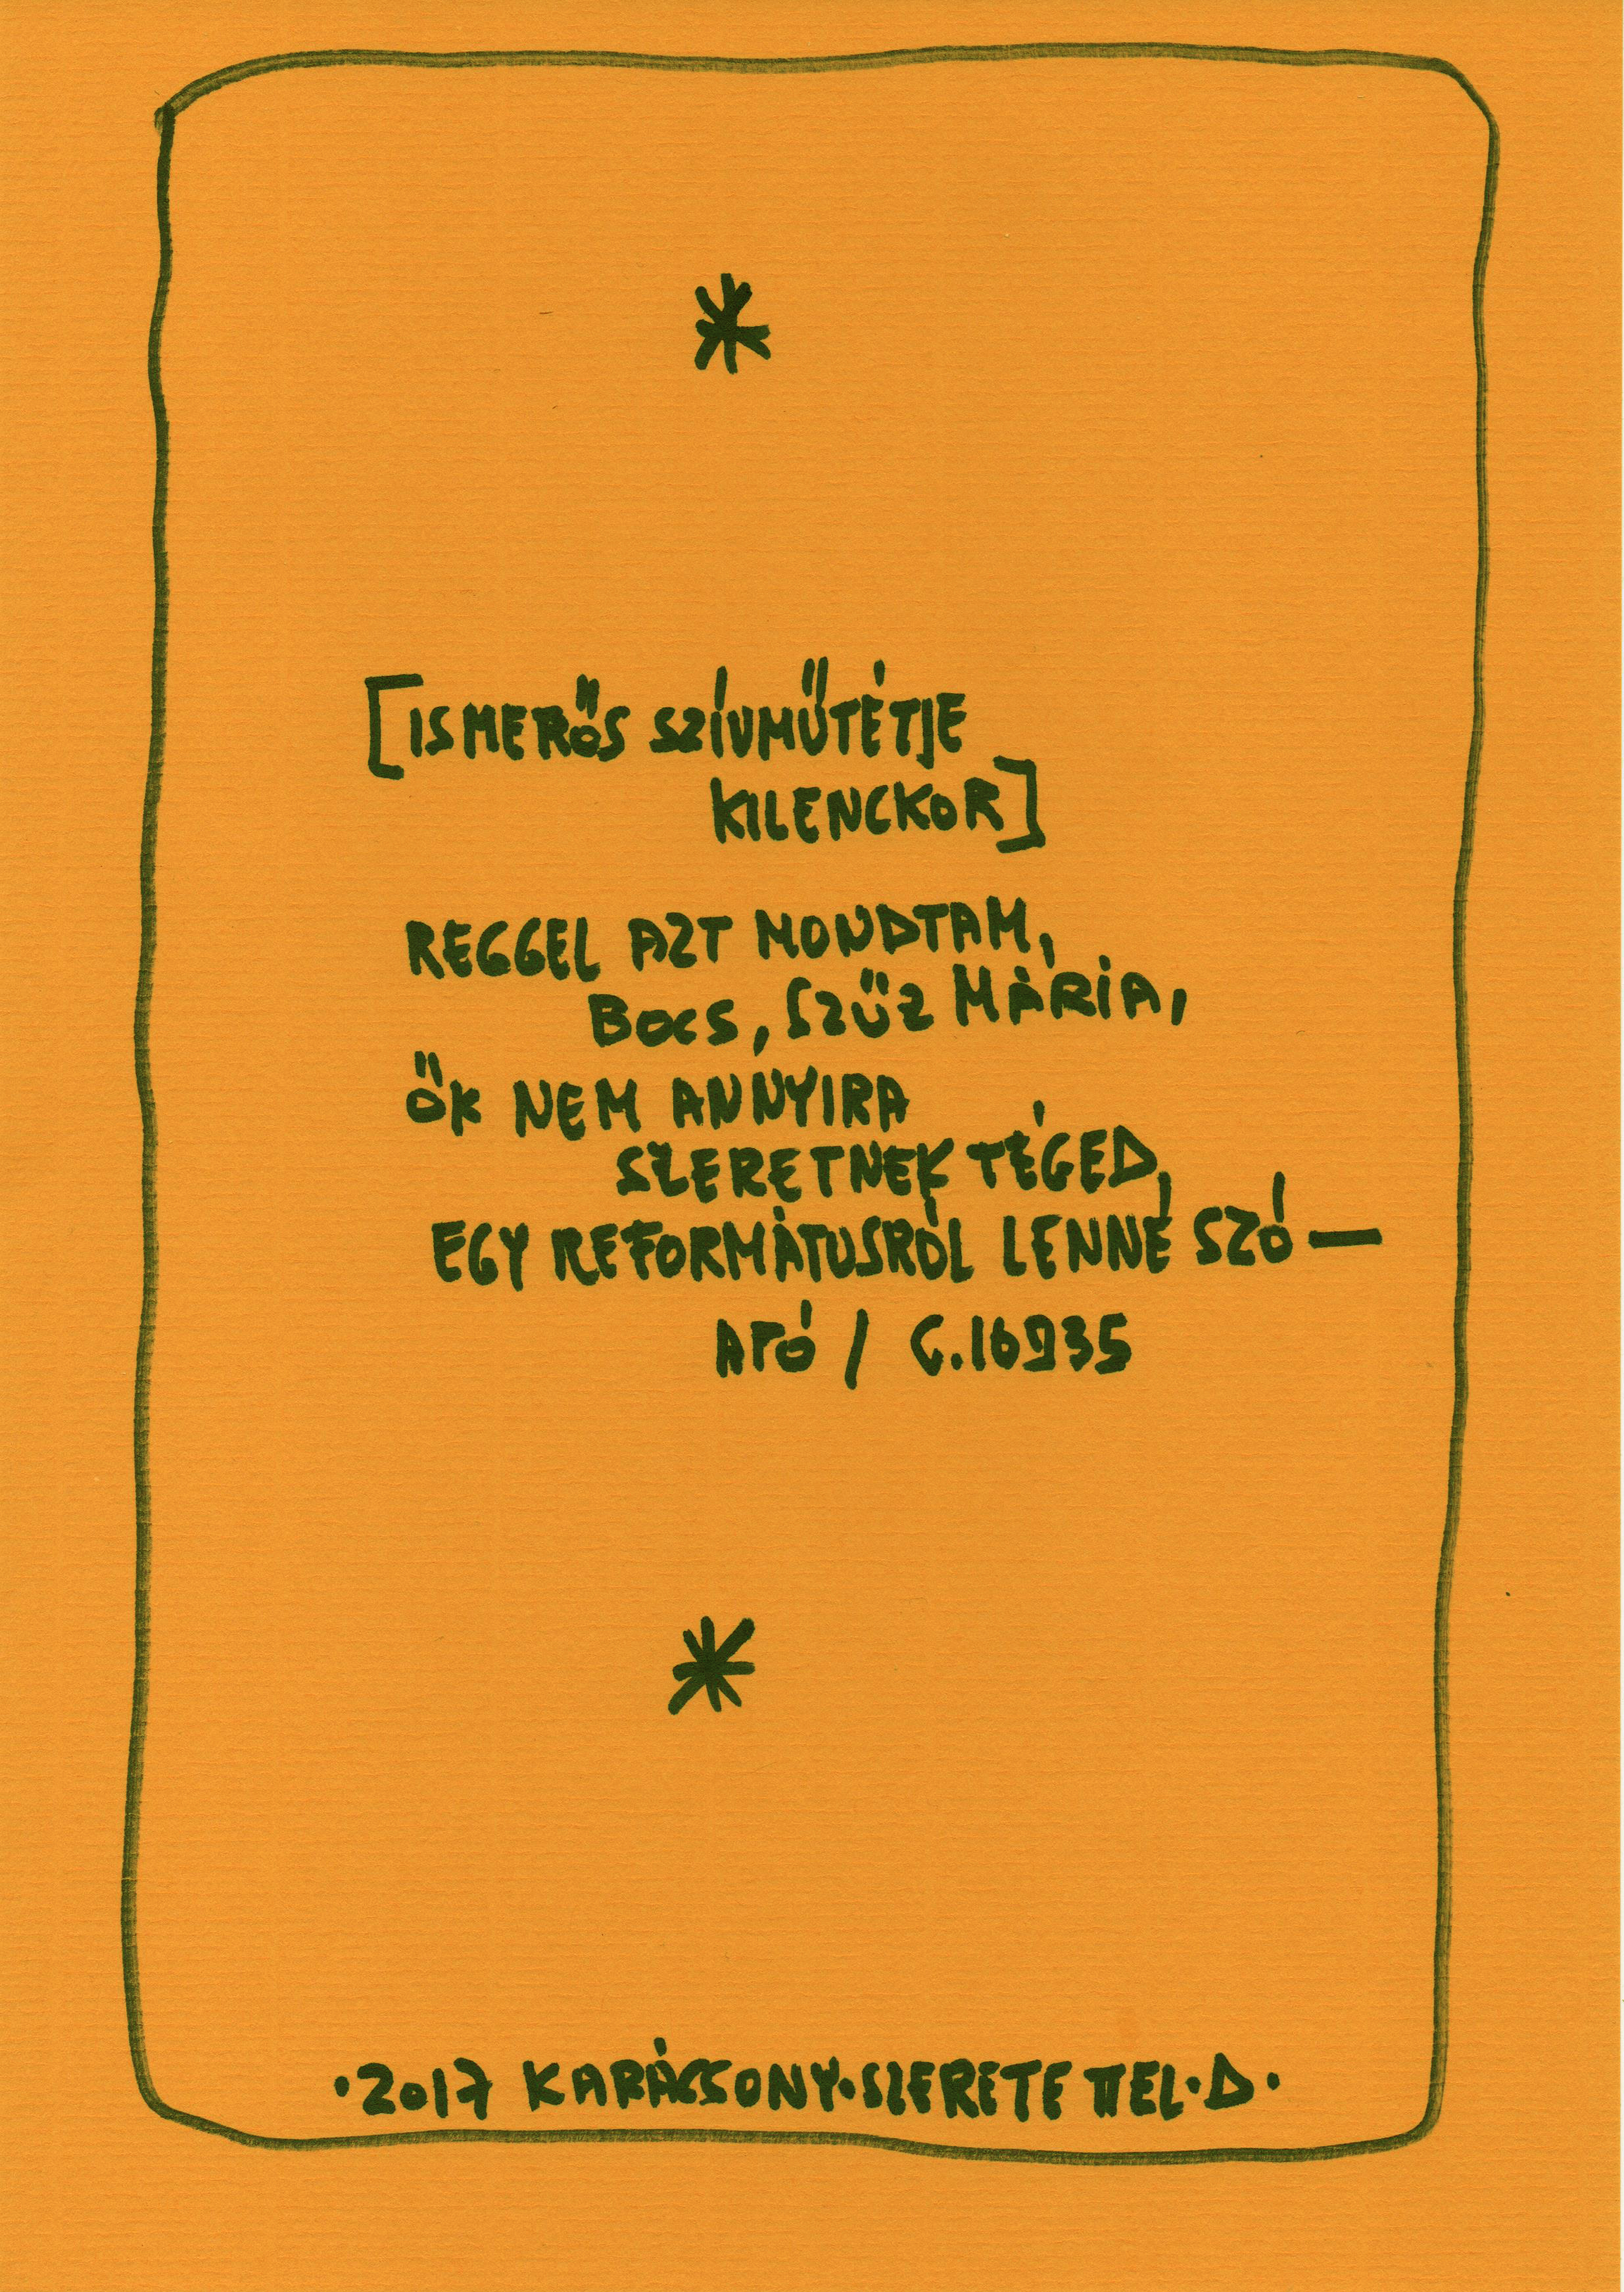 *
[ISMERŐS SZÍVMŰTÉTJE
KILENCKOR]
REGGEL AZT MONDTAM,
BOCS, SZŰZ MÁRIA,
ŐK NEM ANNYIRA
SZERETNEK TÉGED,
EGY REFORMÁTUSRÓL LENNE SZÓ —
APÓ / C.16935
*
·2017 KARÁCSONY·SZERETETTEL·D·